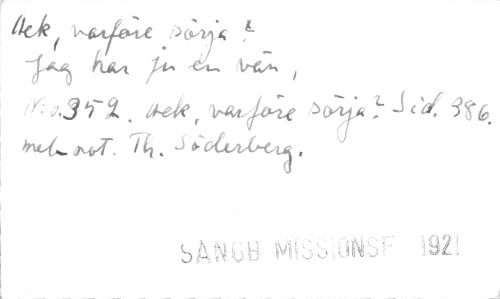 Ack, varföre sörja?
Jag har ju en vän,
N:o 352. Ack, varföre sörja? Sid. 386.
mel. not. Th. Söderberg.
SÅNGB MISSIONSF 1921